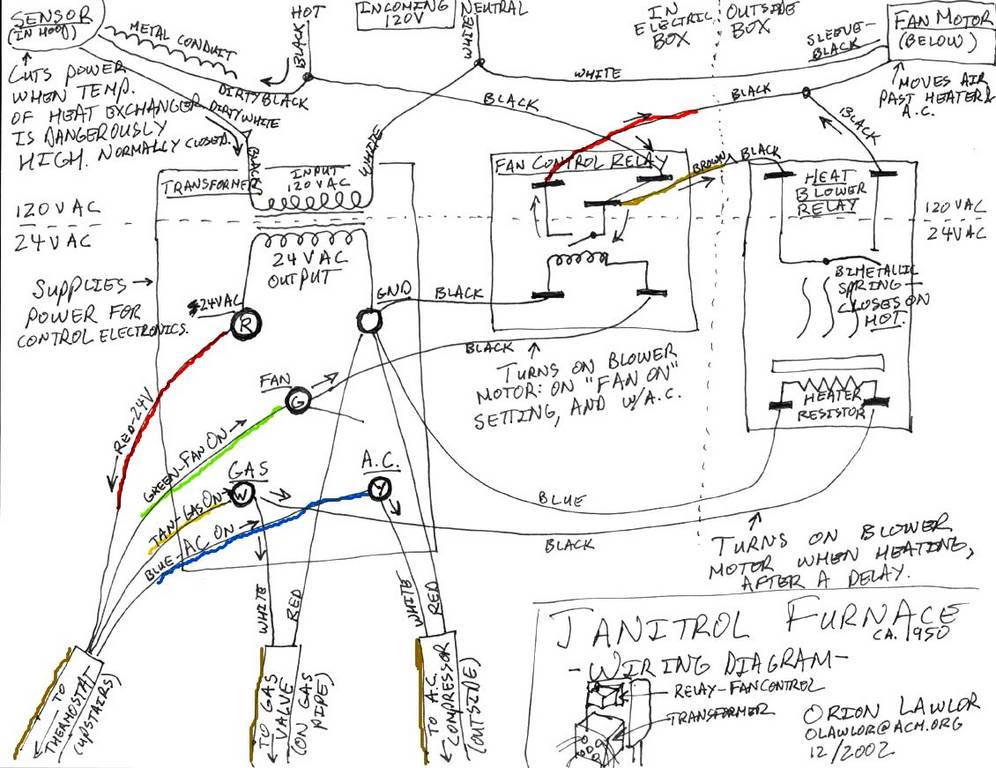 SENSOR
(IN HOOD)
METAL CONDUIT
HOT
BLACK
INCOMING
120V
NEUTRAL
WHITE
IN
ELECTRIC
BOX
OUTSIDE
BOX
SLEEVE-
BLACK
FAN MOTOR
(BELOW)
CUTS POWER
WHEN TEMP.
OF HEAT EXCHANGER
IS DANGEROUSLY
HIGH. NORMALLY CLOSED.
DIRTY BLACK
DIRTY WHITE
BLACK
WHITE
WHITE
BLACK
BLACK
BLACK
MOVES AIR
PAST HEATER &
A.C.
TRANSFORMER
INPUT
120VAC
FAN CONTROL RELAY
BROWN
BLACK
HEAT
BLOWER
RELAY
120VAC
24VAC
120VAC
24VAC
24VAC
OUTPUT
SUPPLIES
POWER FOR
CONTROL ELECTRONICS.
24VAC
R
GND
BLACK
BIMETALLIC
SPRING-
CLOSES ON
HOT.
BLACK
TURNS ON BLOWER
MOTOR: ON "FAN ON"
SETTING, AND W/A.C.
HEATER
RESISTOR
FAN
G
RED-24V
GREEN-FAN ON
GAS
W
A.C.
Y
TAN-GAS ON
BLUE-AC ON
BLUE
BLACK
TURNS ON BLOWER
MOTOR WHEN HEATING,
AFTER A DELAY.
WHITE
RED
WHITE
RED
TO
THERMOSTAT
(UPSTAIRS)
TO GAS
VALVE
(ON GAS
PIPE)
TO A.C.
COMPRESSOR
(OUTSIDE)
JANITROL FURNACE
CA. 1950
-WIRING DIAGRAM-
RELAY-FAN CONTROL
TRANSFORMER
ORION LAWLOR
OLAWLOR@ACM.ORG
12/2002